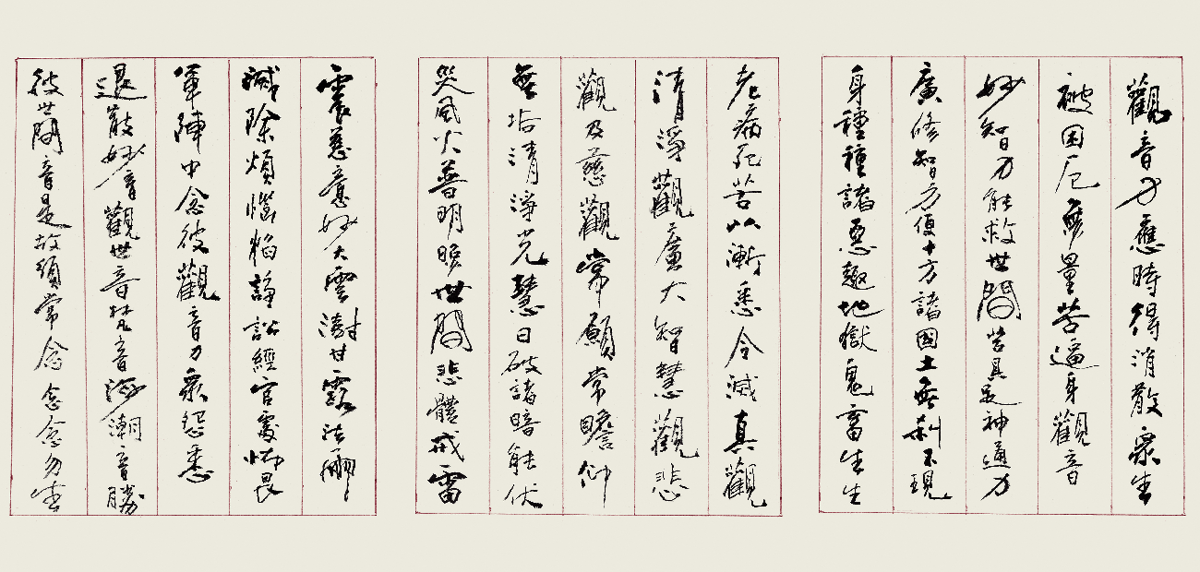 觀音力應時得消散眾生
被困厄無量苦逼身觀音
妙智力能救世間苦具足神通力
廣修智方便十方諸國土無剎不現
身種種諸惡趣地獄鬼畜生生
老病死苦以漸悉令滅真觀
清淨觀廣大智慧觀悲
觀及慈觀常願常瞻仰
無垢清淨光慧日破諸暗能伏
災風火普明照世間悲體戒雷
震慈意妙大雲澍甘露法雨
滅除煩惱焰諍訟經官處怖畏
軍陣中念彼觀音力眾怨悉
退散妙音觀世音梵音海潮音勝
彼世間音是故須常念念念勿生